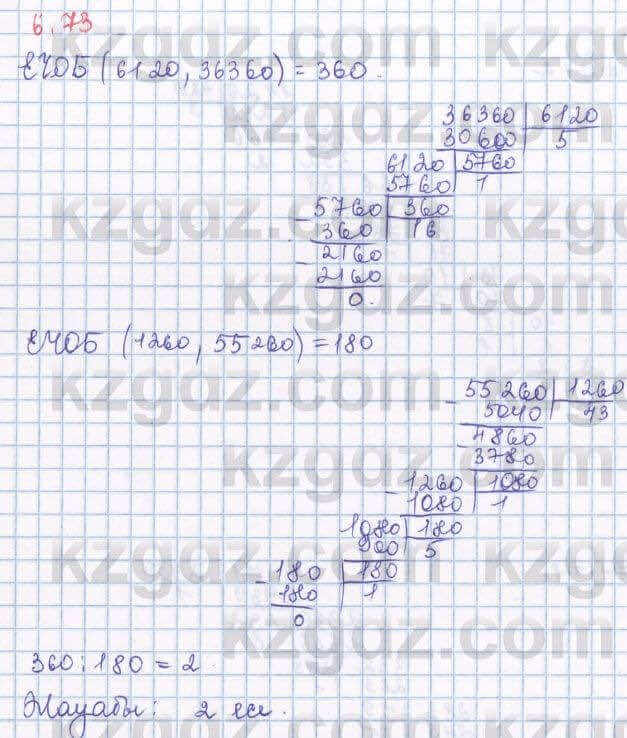 6.73
ЕҮОБ (6120, 36360) = 360.
36360 | 6120
30600 | 5
6120 | 5760
5760 | 1
- 5760 | 360
360 | 16
- 2160
2160
0.
ЕҮОБ (1260, 55260) = 180
- 55260 | 1260
5040 | 43
- 4860
3780
- 1260 | 1080
1080 | 1
1080 | 180
900 | 5
- 180 | 180
180 | 1
0
360 : 180 = 2.
Жауабы: 2 есе.
kzgdz.com